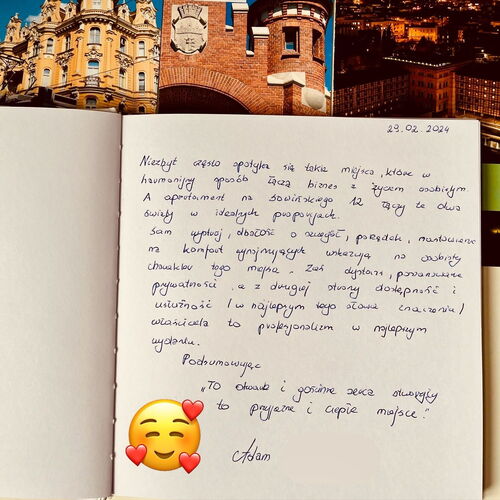 29.02.2024
Niezbyt często spotyka się takie miejsca, które w
harmonijny sposób łączą biznes z życiem osobistym.
A apartament na Sowińskiego 12 łączy te dwa
światy w idealnych proporcjach.
Sam wystrój, dbałość o szczegóły, porządek, nastawienie
na komfort wynajmujących wskazują na osobisty
charakter tego miejsca. Zaś dystans, poszanowanie
prywatności a z drugiej strony dostępność i
usłużność /w najlepszym tego słowa znaczeniu/
właściciela to profesjonalizm w najlepszym
wydaniu.
Podsumowując
„To otwarte i gościnne serca stworzyły
to przyjazne i ciepłe miejsce."
Adam